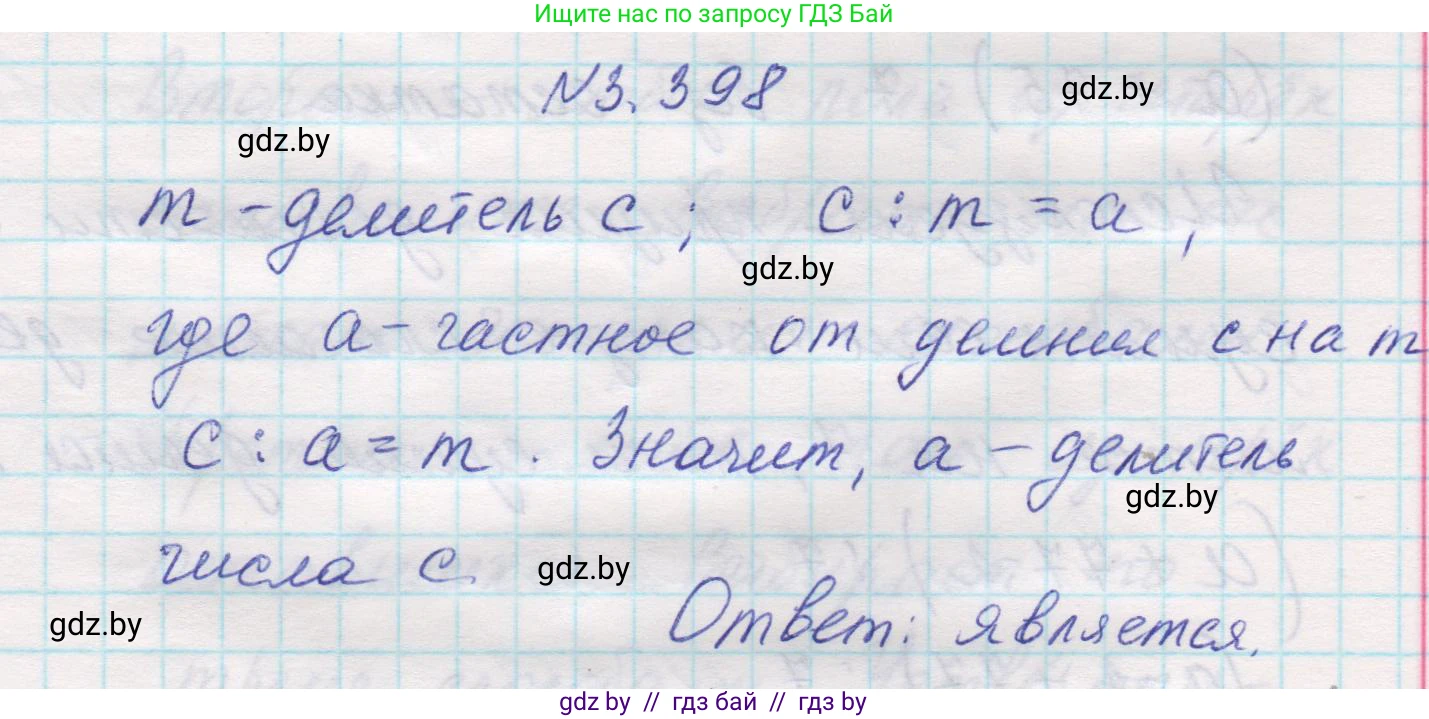 Ищите нас по запросу ГДЗ Бай
N3.398
gdz.by
gdz.by
m - делитель c; c : m = a,
gdz.by
где a - частное от деления c на m
c : a = m. Значит, a - делитель
gdz.by
числа c
gdz.by
gdz.by
Ответ: является.
gdz.by // гдз бай // гдз by